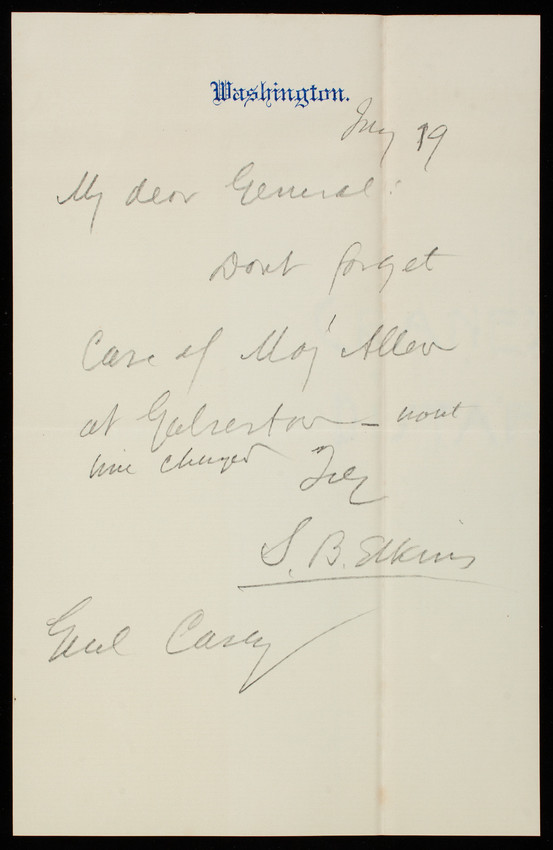 Washington.
19
My dear General:
Dont forget
Case of Maj Allen
at Galveston — want
him changed
S. B. Elkins
Genl Casey